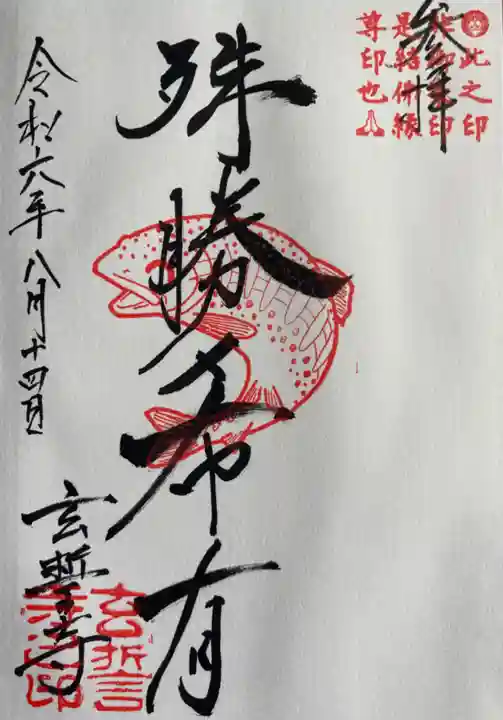 参拝
此之印
是結佛縁
尊印也
殊勝希有
令和六年八月十四日
玄誓寺
玄誓